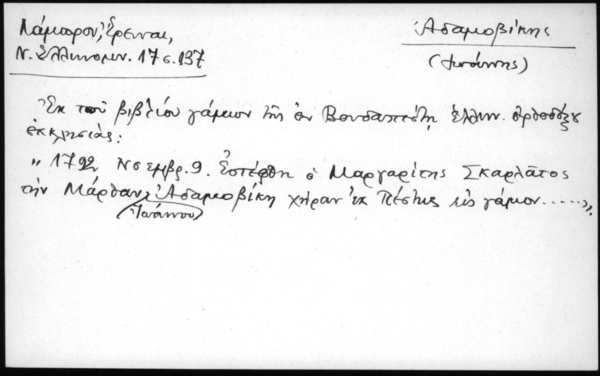 Λάμπρου, Ἔρευναι,
Ν. Ἑλληνομν. 17 σ. 137
Ἀδαμοβίκης
(Ἰωάννης)
Ἐκ τοῦ βιβλίου γάμων τῆς ἐν Βουδαπέστῃ ἑλλην. ὀρθοδόξου
ἐκκλησίας:
„ 1792 Νοεμβρ. 9. Ἐστέφθη ὁ Μαργαρίτης Σκαρλᾶτος
τὴν Μάρθαν Ἀδαμοβίκη χήραν ἐκ Πέστης εἰς γάμον......».
(Ἰωάννου)